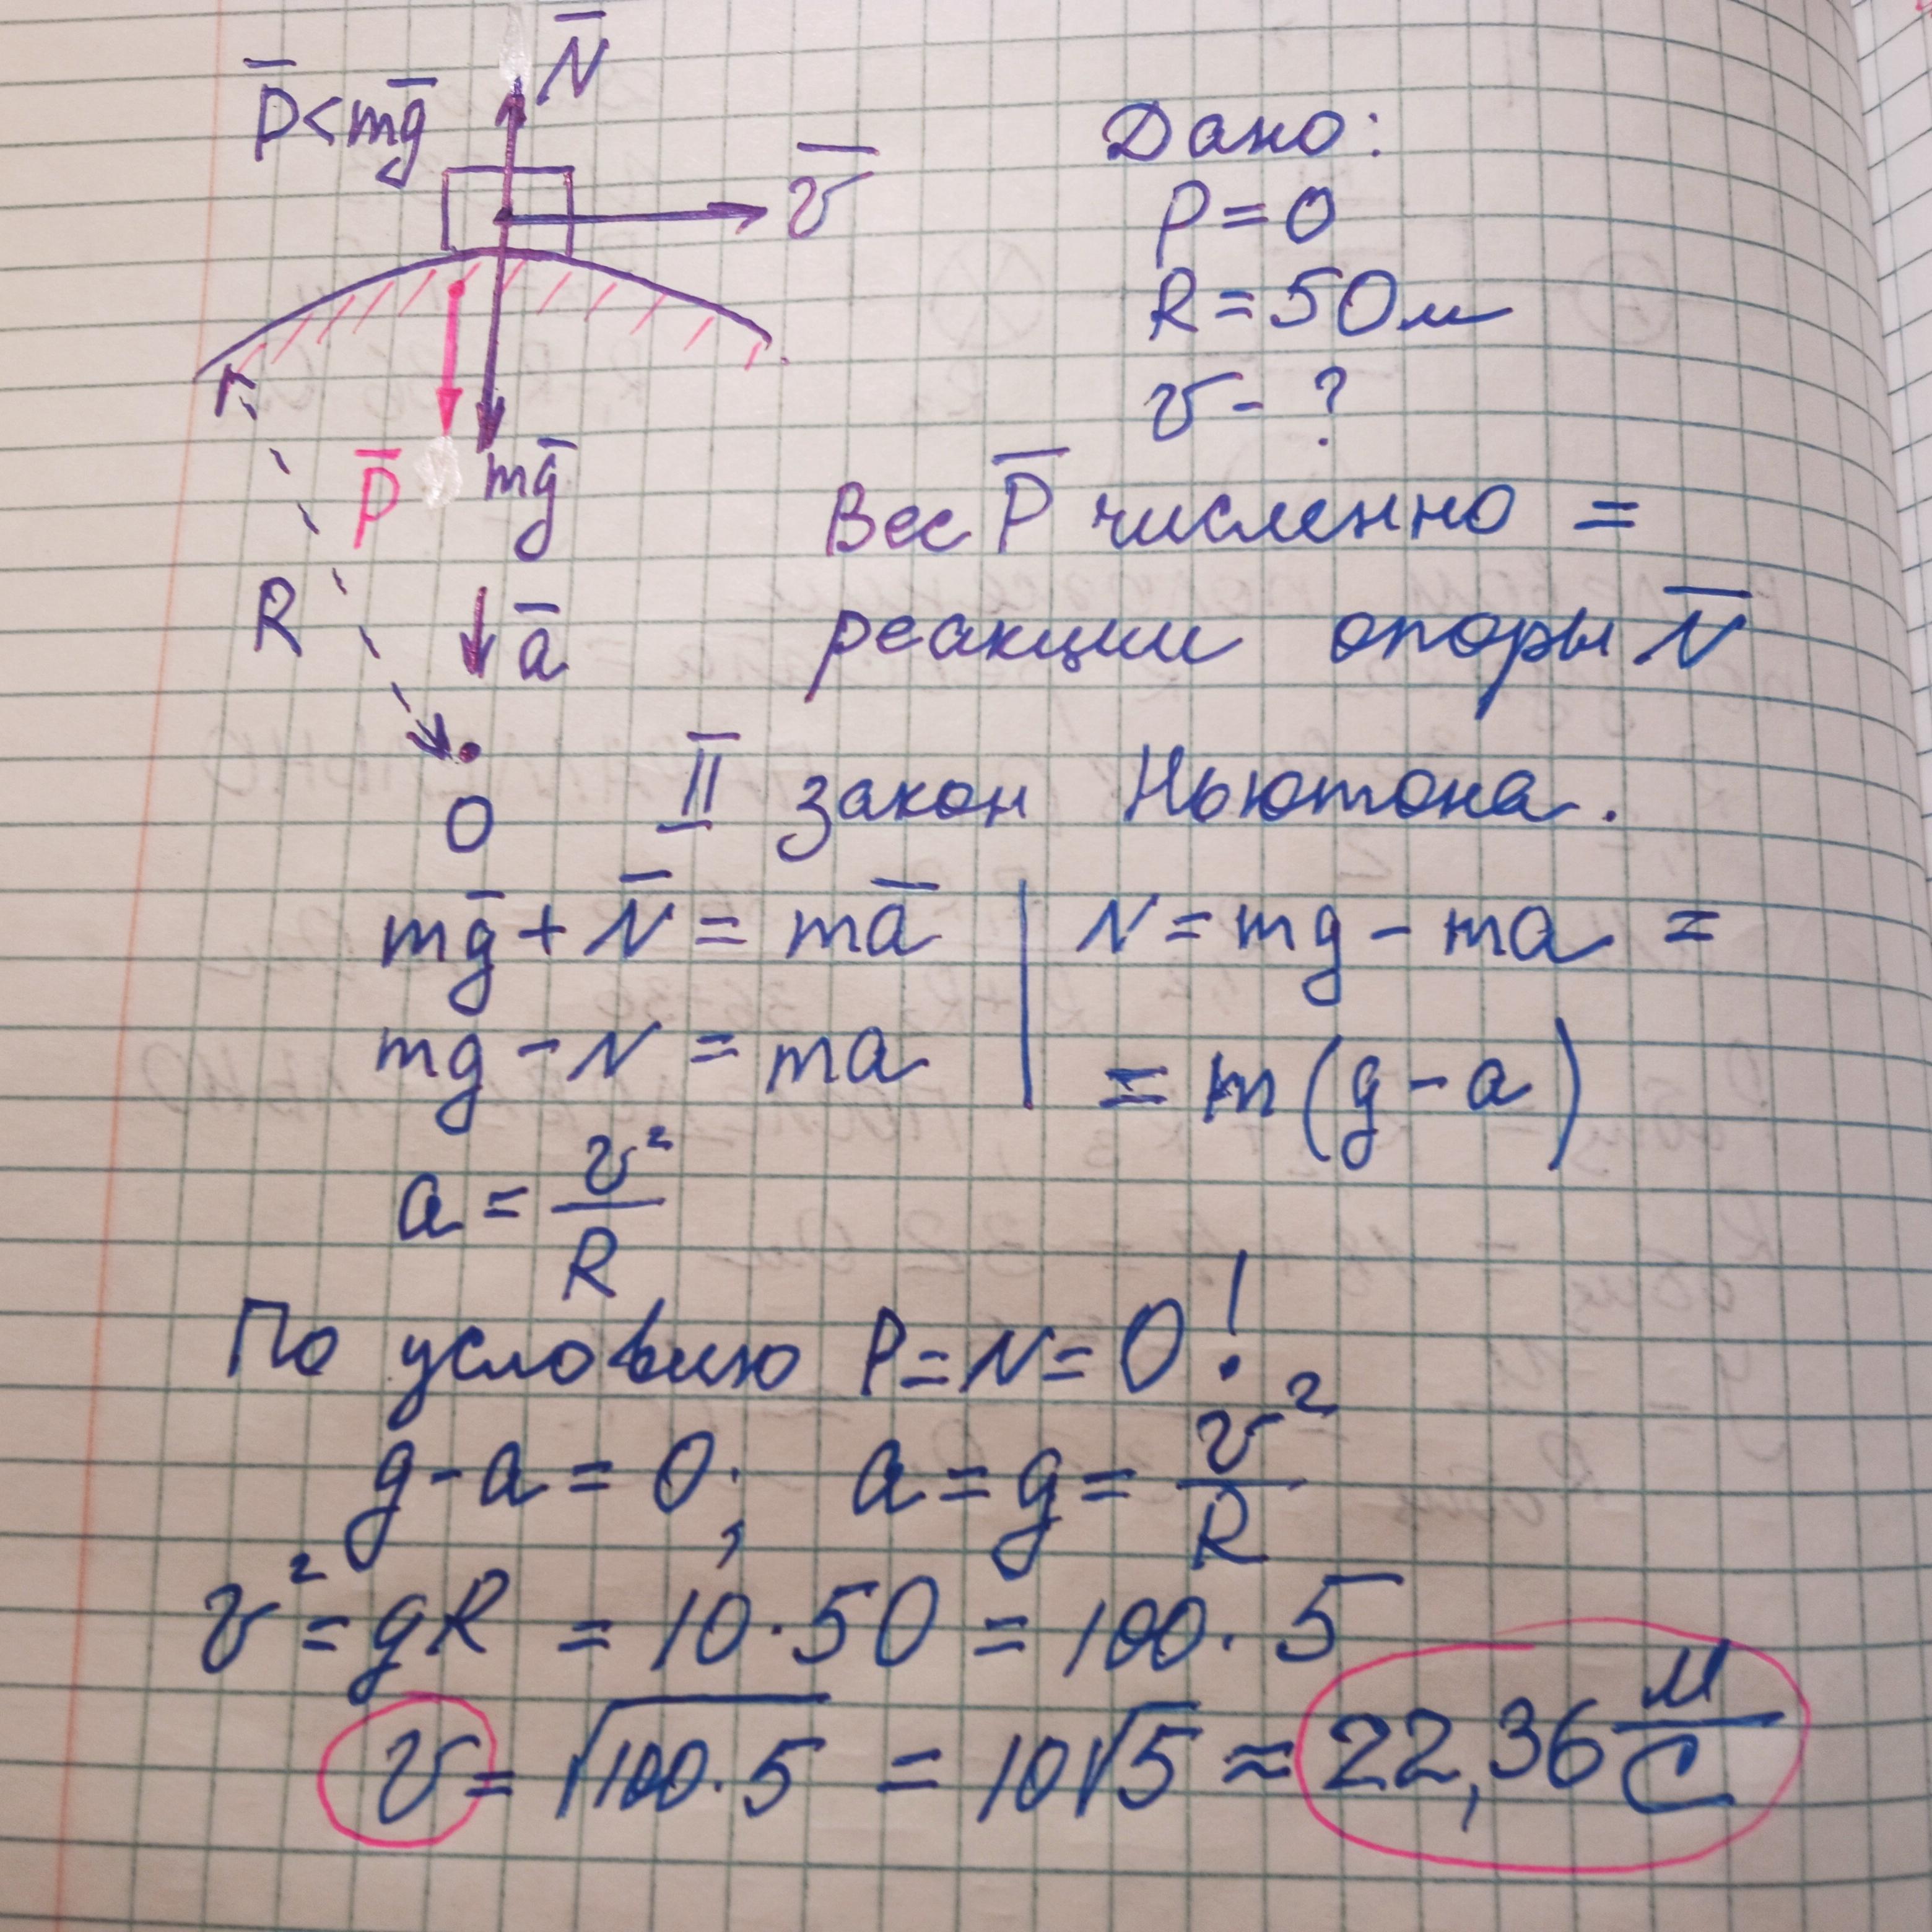 N̅
P̅ < mg̅
v̅
P̅
mg̅
R
a̅
O
Дано:
P = 0
R = 50 м
v - ?
Вес P̅ численно =
реакции опоры N̅
II закон Ньютона.
mg̅ + N̅ = ma̅ | N = mg - ma =
mg - N = ma | = m(g - a)
a = v²/R
По условию P = N = 0!
g - a = 0; a = g = v²/R
v² = gR = 10 · 50 = 100 · 5
v = √100·5 = 10√5 ≈ 22,36 м/с